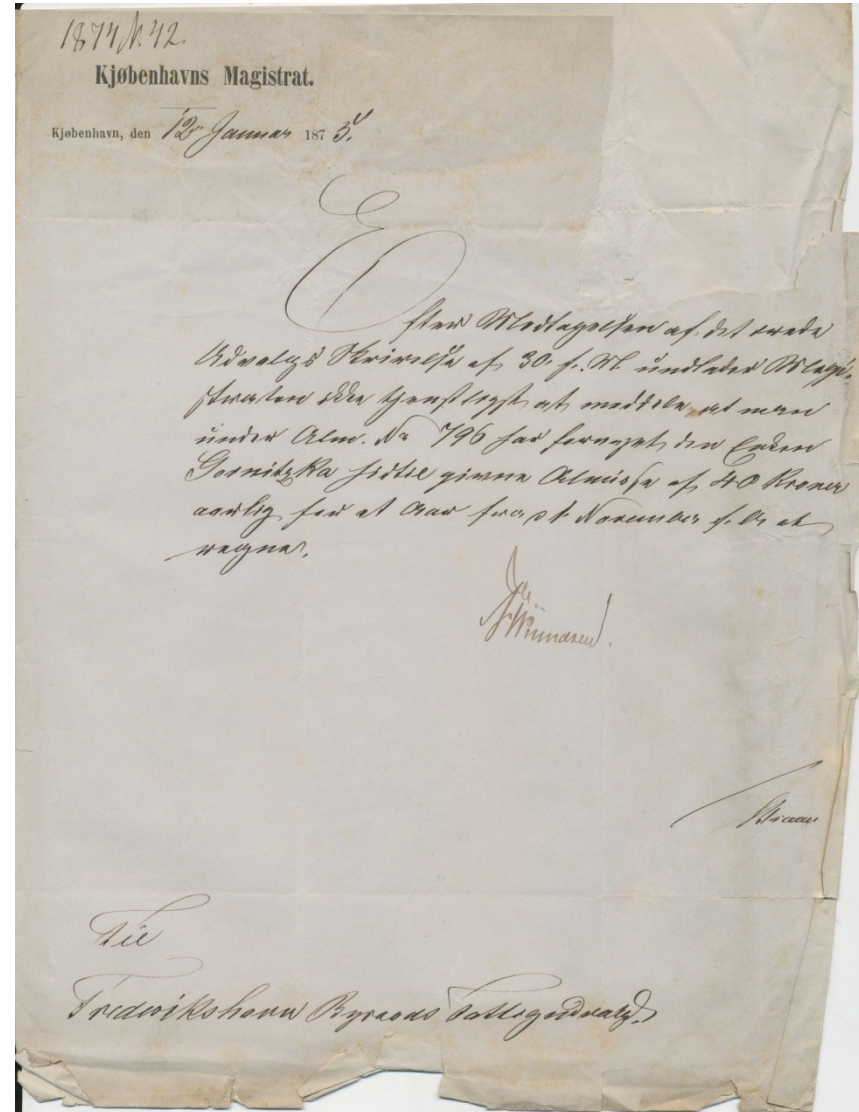 1874 N. 42.
Kjøbenhavns Magistrat.
Kjøbenhavn, den 12 Januar 1875.
Efter Modtagelsen af det ærede
Udvalgs Skrivelse af 30. f. M. undlader Magi-
straten ikke tjenstligst at meddele, at man
under Alm. No 796 har fornyet den Enken
Gornitzka hidtil givne Almisse af 40 Kroner
aarlig for et Aar fra 1st November f. A. at
regne.
Til
Frederikshavn Byraads Fattigudvalg.